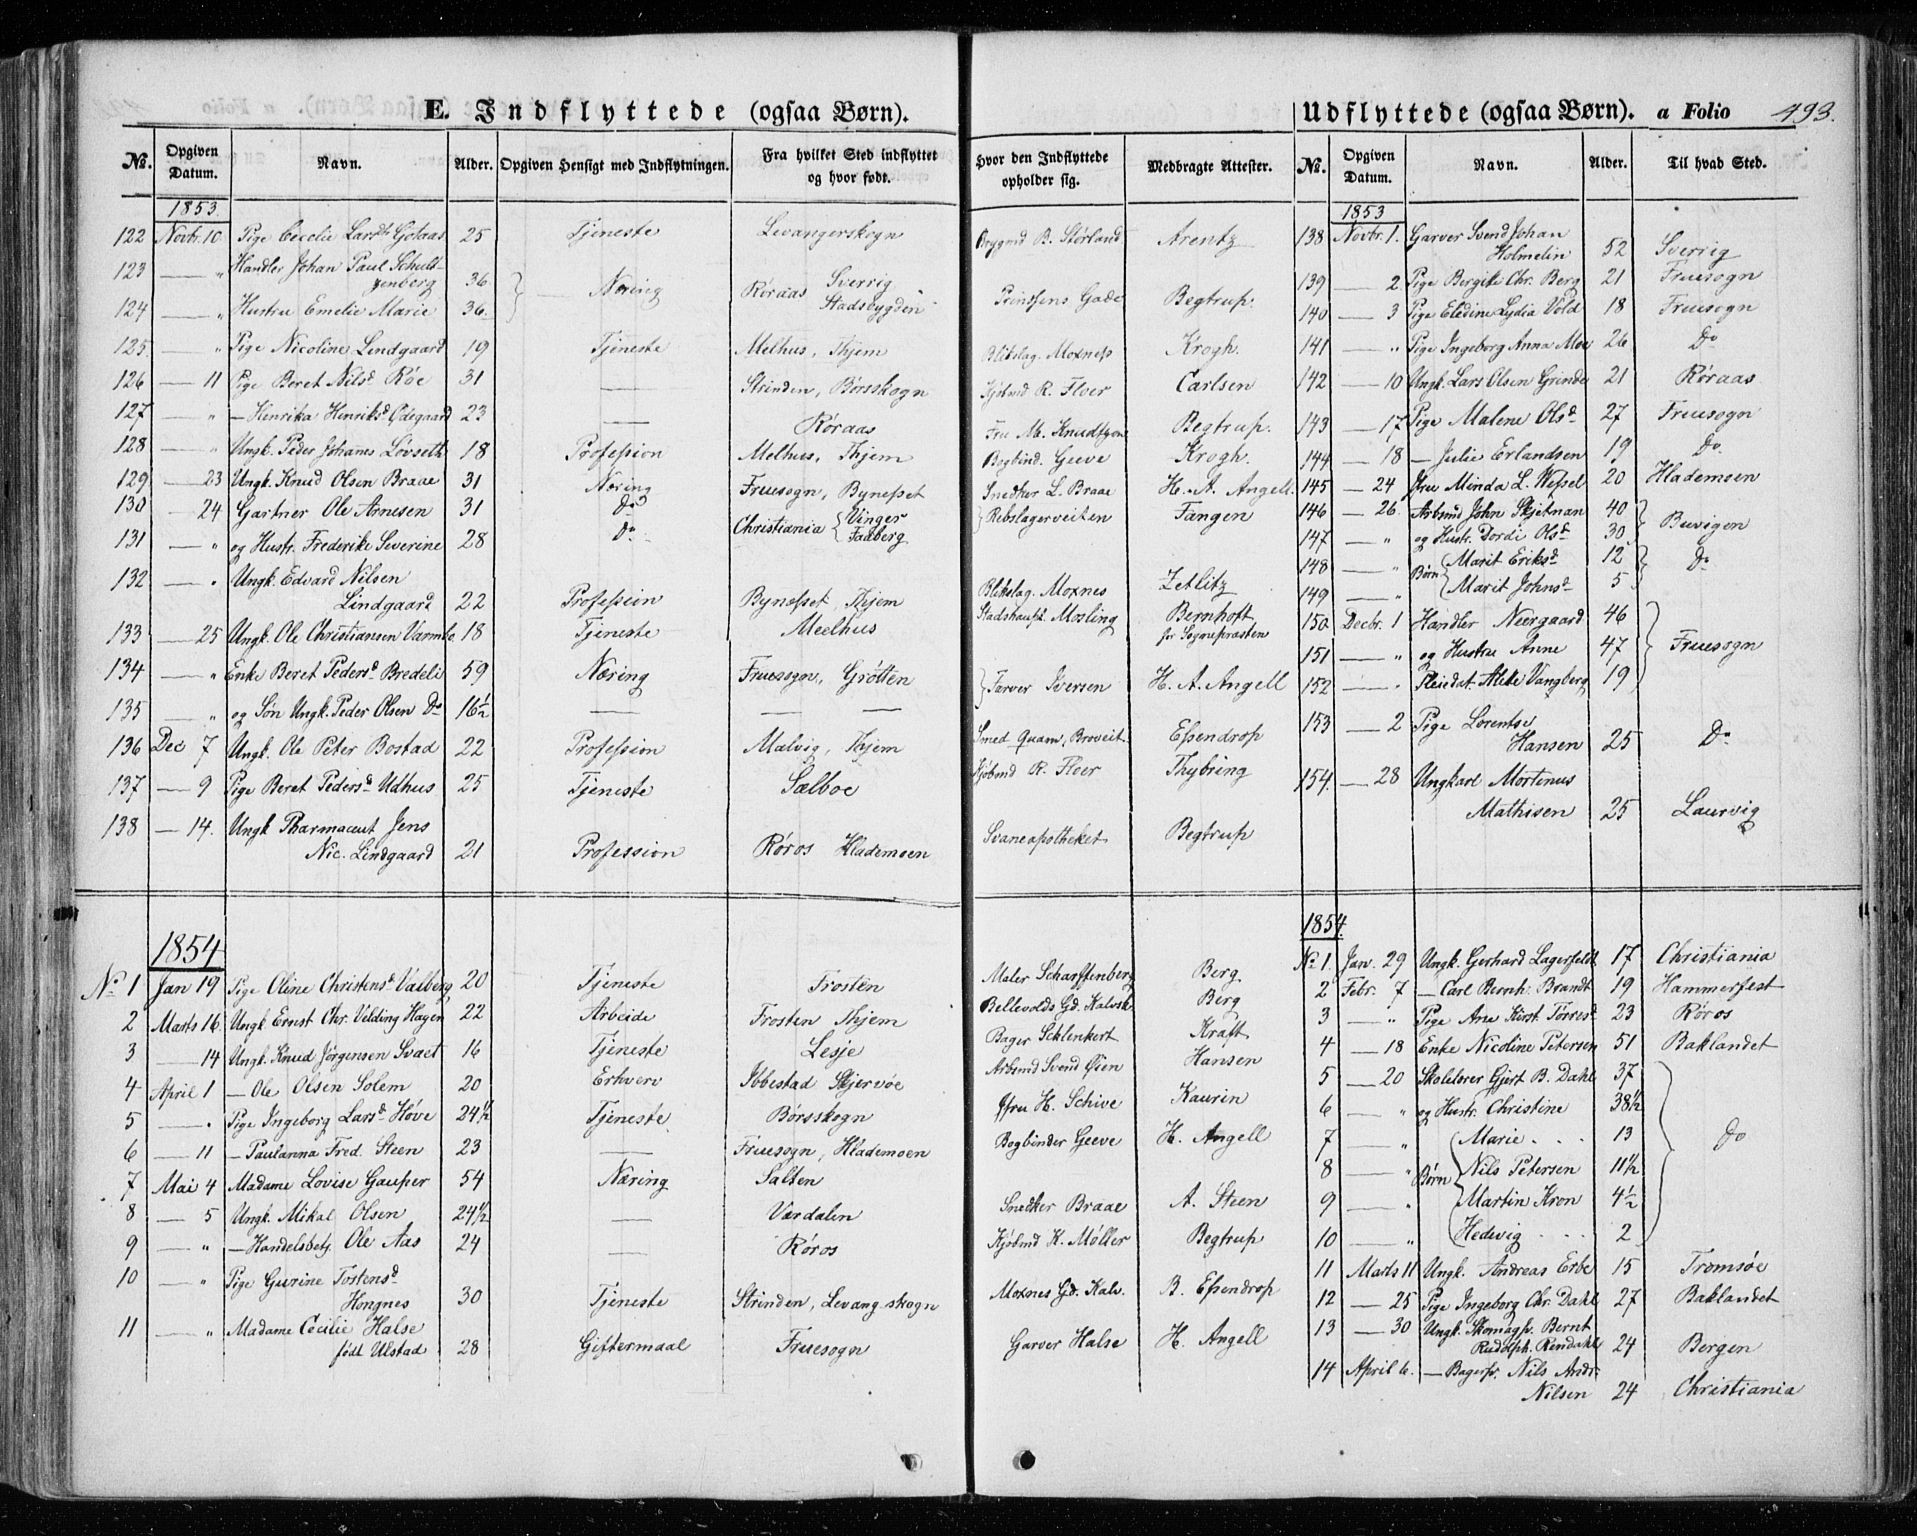 E. Indflyttede (ogsaa Børn).
No. Opgiven Datum. Navn. Alder. Opgiven Hensigt med Indflytningen. Fra hvilket Sted indflyttet og hvor født. Hvor den Indflyttede opholder sig. Medbragte Attester.
1853
122 Novbr. 10 Pige Cecelie Larsdr 25 Tjeneste Levangerskogn Brygmd B. Størland Arentz
123 — " Handler Johan Paul Schult-
zenberg 36 Næring Røraas Sverrig Prinsens Gade Begtrup.
124 — " Hustru Emelie Marie 36. Stadsbygden
125 " Pige Nicoline Lindgaard 19 Tjeneste Melhus, Thjem Blikslag. Moxness Krogh.
126 — 11 Pige Beret Nilsd. Røe 31 — Strinden, Børsskogn Kjøbmd R. Floer Carlsen
127 " — Henrika Henriksd. Ødegaard 23 — Røraas Fru M. Knudtzon Begtrup.
128 " Ungk. Peder Johanns Løvseth 18 Profession Melhus, Thjem Bogbind. Geeve Krogh.
129 — 23 Ungk. Knud Olsen Braae 31 Næring Fruesogn, Bynesset Snedker L. Braae H. A. Angell.
130 — 24 Gartner Ole Arnesen 31 Do Christiania Vinger Rebslagerveiten Fangen
131 — " og Hustr. Frederike Severine 28 Do Faaberg
132 — " Ungk. Edvard Nilsen
Lindgaard 22 Profession Bynesset, Thjem Blikslag. Moxnes Zetlitz
133 — 25 Ungk. Ole Christiansen Varmbo 18 Tjeneste Meelhus Stadshaupt. Mosling Bernhoft
for Sognepræsten
134 — " Enke Beret Pedersd. Bredeli 59 Næring Fruesogn, Grøtten Farver Iversen H. A. Angell
135 — " og Søn Ungk. Peder Olsen Do 16½ — — —
136 Dec 7 Ungk. Ole Peter Bostad 22 Profession Malvig, Thjem Smed Quam, Broveit. Essendrop
137 — 9 Pige Beret Pedersd. Udhus 25 Tjeneste Sælboe Kjøbmd R. Floer Thybring
138 — 14. Ungk Pharmaceut Jens
Nic. Lindgaard 21 Profession Røros Hlademoen Svaneapotheket Begtrup
1854
No 1 Jan 19 Pige Oline Christensd. Valberg 20 Tjeneste Frosten Maler Scharffenberg Berg
2 Marts 16. Ungk Ernst Chr. Velding Hagen 22 Arbeide Frosten Thjem Bellevolds Gd. Kalvsk. Berg
3 — 14 Ungk. Knud Jørgensen Svaet 16 Tjeneste Lesje Bager Schlenkert Kraft
4 April 1 — Ole Olsen Solem 20 Erhverv Ibbestad Skjervøe Arbsmd Svend Øien Hansen
5 — " Pige Ingeborg Larsd. Høve 24½ Tjeneste Børsskogn Jfru H. Schive Kaurin
6 — 11 — Paulanna Fred. Steen 23 — Fruesogn, Hlademoen Bogbinder Geeve H. Angell
7 Mai 4 Madame Lovise Gauper 54 Næring Salten
8 — 5 Ungk. Mikal Olsen 24½ — Værdalen Snedker Braae A. Steen
9 — " — Handelsbetj. Ole Aas 24 — Røros Kjøbmd K. Møller Begtrup
10 — " Pige Gurine Tostensd.
Hongnes 30 Tjeneste Strinden, Levang.skogn Moxnes Gd. Kalv. B. Essendrop
11 — " Madame Cecilie Halse
født Ulstad 28 Giftermaal Fruesogn Garver Halse H. Angell
Udflyttede (ogsaa Børn). a Folio 493.
No. Opgiven Datum. Navn. Alder. Til hvad Sted.
1853
138 Novbr. 1. Garver Svend Johan
Holmelin 52 Sverrig
139 — 2 Pige Bergitte Chr. Berg 21 Fruesogn
140 — 3 Pige Eledine Lydia Vold 18 Fruesogn
141 — " Pige Ingeborg Anna Moe 26 Do
142 — 10 Ungk. Lars Olsen Grinde 21 Røraas
143 — 17 Pige Malene Olsd. 27 Fruesogn
144 — 18 — Julie Erlandsen 19 Do
145 — 24 Jfru Minda L. Wessel 20 Hlademoen
146 — 26. Arbsmd John Skjetnan 40 Buvigen
147 — " og Hustr. Dordi Olsd. 30
148 — " Børn Marit Eriksd. 12 Do
149 — " Marit Johnsd. 5
150 Decbr. 1 Handler Neergaard 46 Fruesogn
151 — " og Hustru Anne 47
152 — " Pleiedat. Vangberg 19
153 — 2 Pige Lorentse
Hansen 25 Do
154. — 28 Ungkarl Mortinus
Mathisen 25 Laurvig
1854.
No 1. Jan. 29 Ungk. Gerhard Lagerfeldt 17 Christiania
2 Febr. 7 — Carl Bernh. Brandt 19 Hammerfest
3 — " Pige Ane Kirst. Torresd. 23 Røros
4 — 18 Enke Nicoline Petersen 51 Baklandet
5 — 20 Skolelærer Gjert B. Dahl 37 Do
6 — " og Hustr. Christine 38½
7 — " Børn Marie . . . 13
8 — " Nils Petersen 11½
9 — " Martin Kron 4½
10 — " Hedevig . . . 2
11 Marts 11 Ungk. Andreas Erbe 15 Tromsøe
12 — 25 Pige Ingeborg Chr. Dahl 27 Baklandet
13 — 30 Ungk. Skomagr. Bernt
Rudolph. Rendahl 24 Bergen
14 April 6. — Bagersv. Nils Andr.
Nilsen 24 Christiania